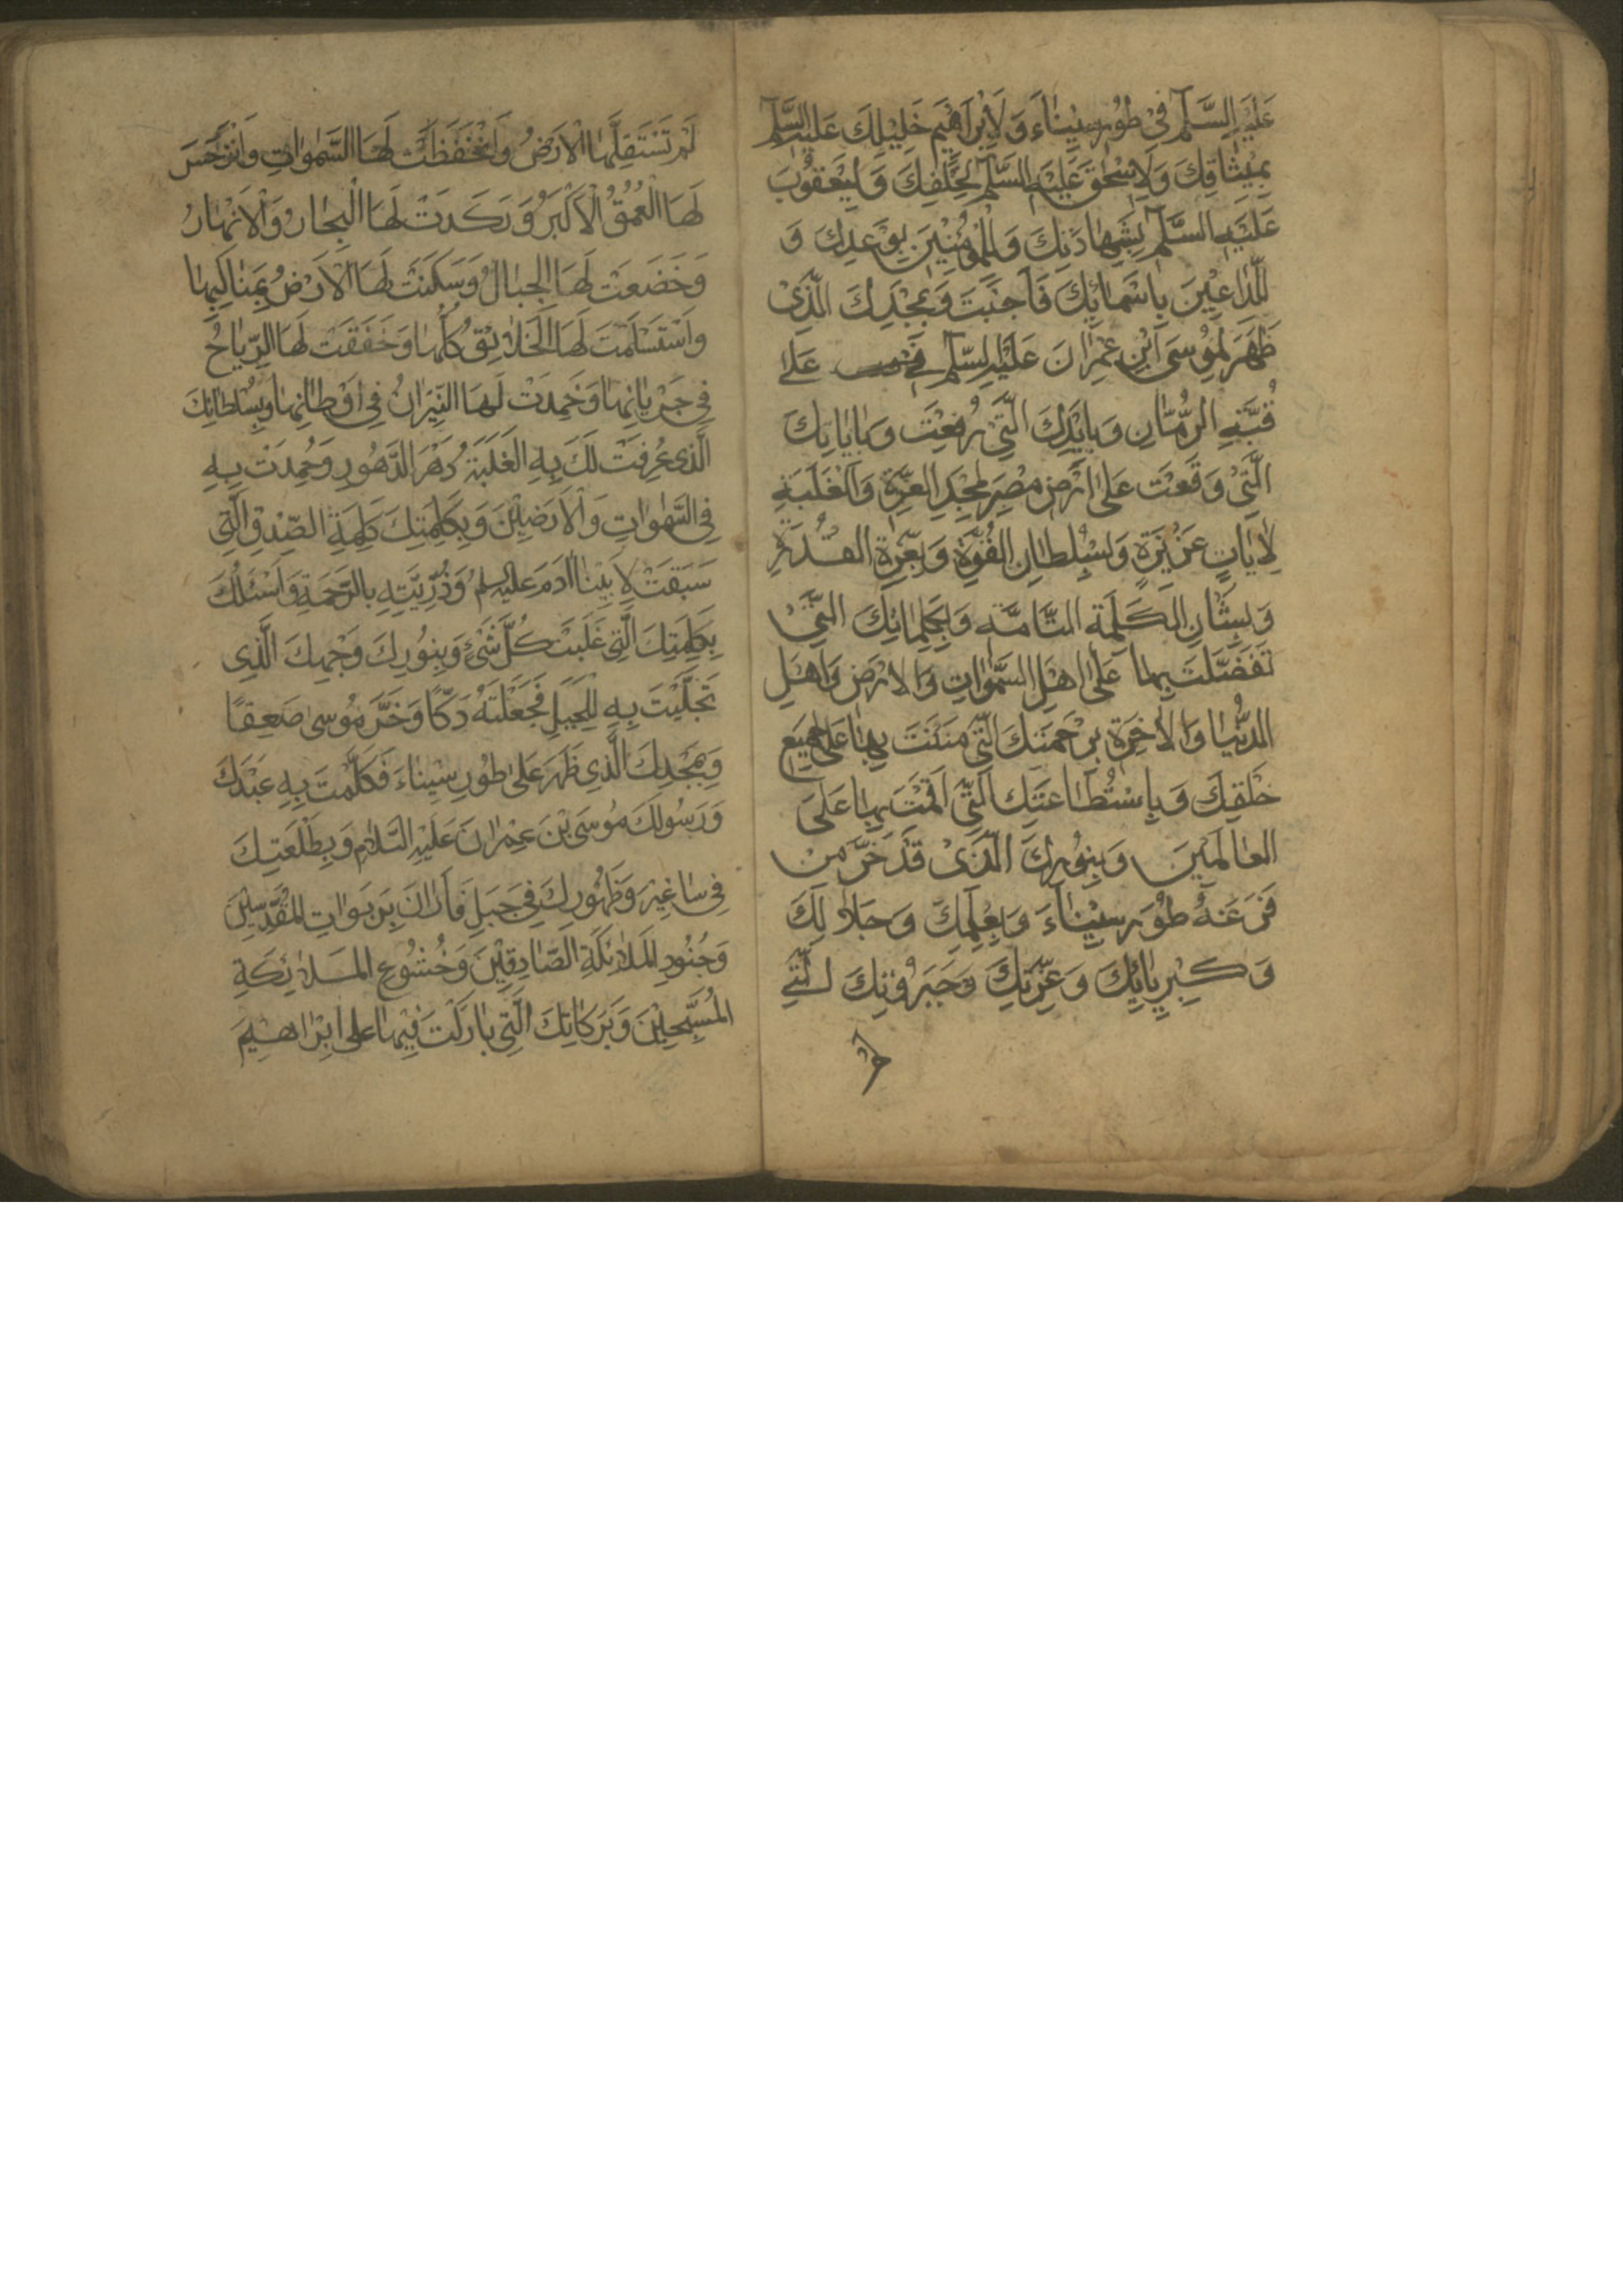 عَلَيْهِ السَّلَم فِيْ طُوْرِ سِيْنَاءَ وَلِاِبْرَاهِيْمَ خَلِيْلِكَ عَلَيْهِ السَّلَم
بِمِيْثَاقِكَ وَلِاِسْحٰقَ عَلَيْهِ السَّلَم بِحَلْفِكَ وَلِيَعْقُوْبَ
عَلَيْهِ السَّلَم بِشَهَادَتِكَ وَلِلْمُؤْمِنِيْنَ بِوَعْدِكَ وَ
لِلدَّاعِيْنَ بِاَسْمَائِكَ فَاَجَبْتَ وَبِمَجْدِكَ الَّذِيْ
ظَهَرَ لِمُوْسَى ابْنِ عِمْرَانَ عَلَيْهِ السَّلَم عَلَى
قُبَّةِ الرُّمَّانِ وَبِاَيْدِكَ الَّتِيْ رُفِعَتْ وَبِاٰيَاتِكَ
الَّتِيْ وَقَعَتْ عَلٰى اَرْضِ مِصْرَ بِمَجْدِ الْعِزَّةِ وَالْغَلَبَةِ
لِاٰيَاتٍ عَزِيْزَةٍ وَبِسُلْطَانِ الْقُوَّةِ وَبِعِزَّةِ الْقُدْرَةِ
وَبِشَانِ الْكَلِمَةِ التَّامَّةِ وَبِكَلِمَاتِكَ الَّتِيْ
تَفَضَّلْتَ بِهَا عَلٰى اَهْلِ السَّمٰوَاتِ وَالْاَرْضِ وَاَهْلِ
الدُّنْيَا وَالْاٰخِرَةِ بِرَحْمَتِكَ الَّتِيْ مَنَنْتَ بِهَا عَلٰى جَمِيْعِ
خَلْقِكَ وَبِاسْتِطَاعَتِكَ الَّتِيْ اَقَمْتَ بِهَا عَلَى
الْعَالَمِيْنَ وَبِنُوْرِكَ الَّذِيْ قَدْ خَرَّ مِنْ
فَزَعِهِ طُوْرُ سِيْنَاءَ وَبِعِلْمِكَ وَجَلَالِكَ
وَكِبْرِيَائِكَ وَعِزَّتِكَ وَجَبَرُوْتِكَ الَّتِيْ
لَمْ
لَمْ تَسْتَقِلَّهَا الْاَرْضُ وَانْخَفَضَتْ لَهَا السَّمٰوَاتِ وَانْزَجَرَ
لَهَا الْعُمْقُ الْاَكْبَرُ وَرَكَدَتْ لَهَا الْبِحَارُ وَالْاَنْهَارُ
وَخَضَعَتْ لَهَا الْجِبَالُ وَسَكَنَتْ لَهَا الْاَرْضُ بِمَنَاكِبِهَا
وَاسْتَسْلَمَتْ لَهَا الْخَلَائِقُ كُلُّهَا وَخَفَقَتْ لَهَا الرِّيَاحُ
فِي جَرَيَانِهَا وَخَمِدَتْ لَهَا النِّيْرَانُ فِي اَوْطَانِهَا وَبِسُلْطَانِكَ
الَّذِي عُرِفَتْ لَكَ بِهِ الْغَلَبَةُ دَهْرَ الدُّهُورِ وَحُمِدْتَ بِهِ
فِي السَّمٰوَاتِ وَالْاَرَضِيْنَ وَبِكَلِمَتِكَ كَلِمَةِ الصِّدْقِ الَّتِي
سَبَقَتْ لِاَبِيْنَا اٰدَمَ عَلَيْهِ السَّلَم وَذُرِّيَّتِهِ بِالرَّحْمَةِ وَاَسْئَلُكَ
بِكَلِمَتِكَ الَّتِي غَلَبَتْ كُلَّ شَيْءٍ وَبِنُورِكَ وَجْهِكَ الَّذِي
تَجَلَّيْتَ بِهِ لِلْجَبَلِ فَجَعَلْتَهُ دَكًّا وَخَرَّ مُوسٰى صَعِقًا
وَبِمَجْدِكَ الَّذِي ظَهَرَ عَلٰى طُورِ سِيْنَاءَ فَكَلَّمْتَ بِهِ عَبْدَكَ
وَرَسُولَكَ مُوسَى بْنَ عِمْرَانَ عَلَيْهِ السَّلَامُ وَبِطَلْعَتِكَ
فِي سَاغِيْرَ وَظُهُورِكَ فِي جَبَلِ فَارَانَ بِرَبَوَاتِ الْمُقَدَّسِيْنَ
وَجُنُودِ الْمَلَائِكَةِ الصَّادِقِيْنَ وَخُشُوعِ الْمَلَائِكَةِ
الْمُسَبِّحِيْنَ وَبَرَكَاتِكَ الَّتِي بَارَكْتَ فِيْهَا عَلٰى اِبْرَاهِيْمَ